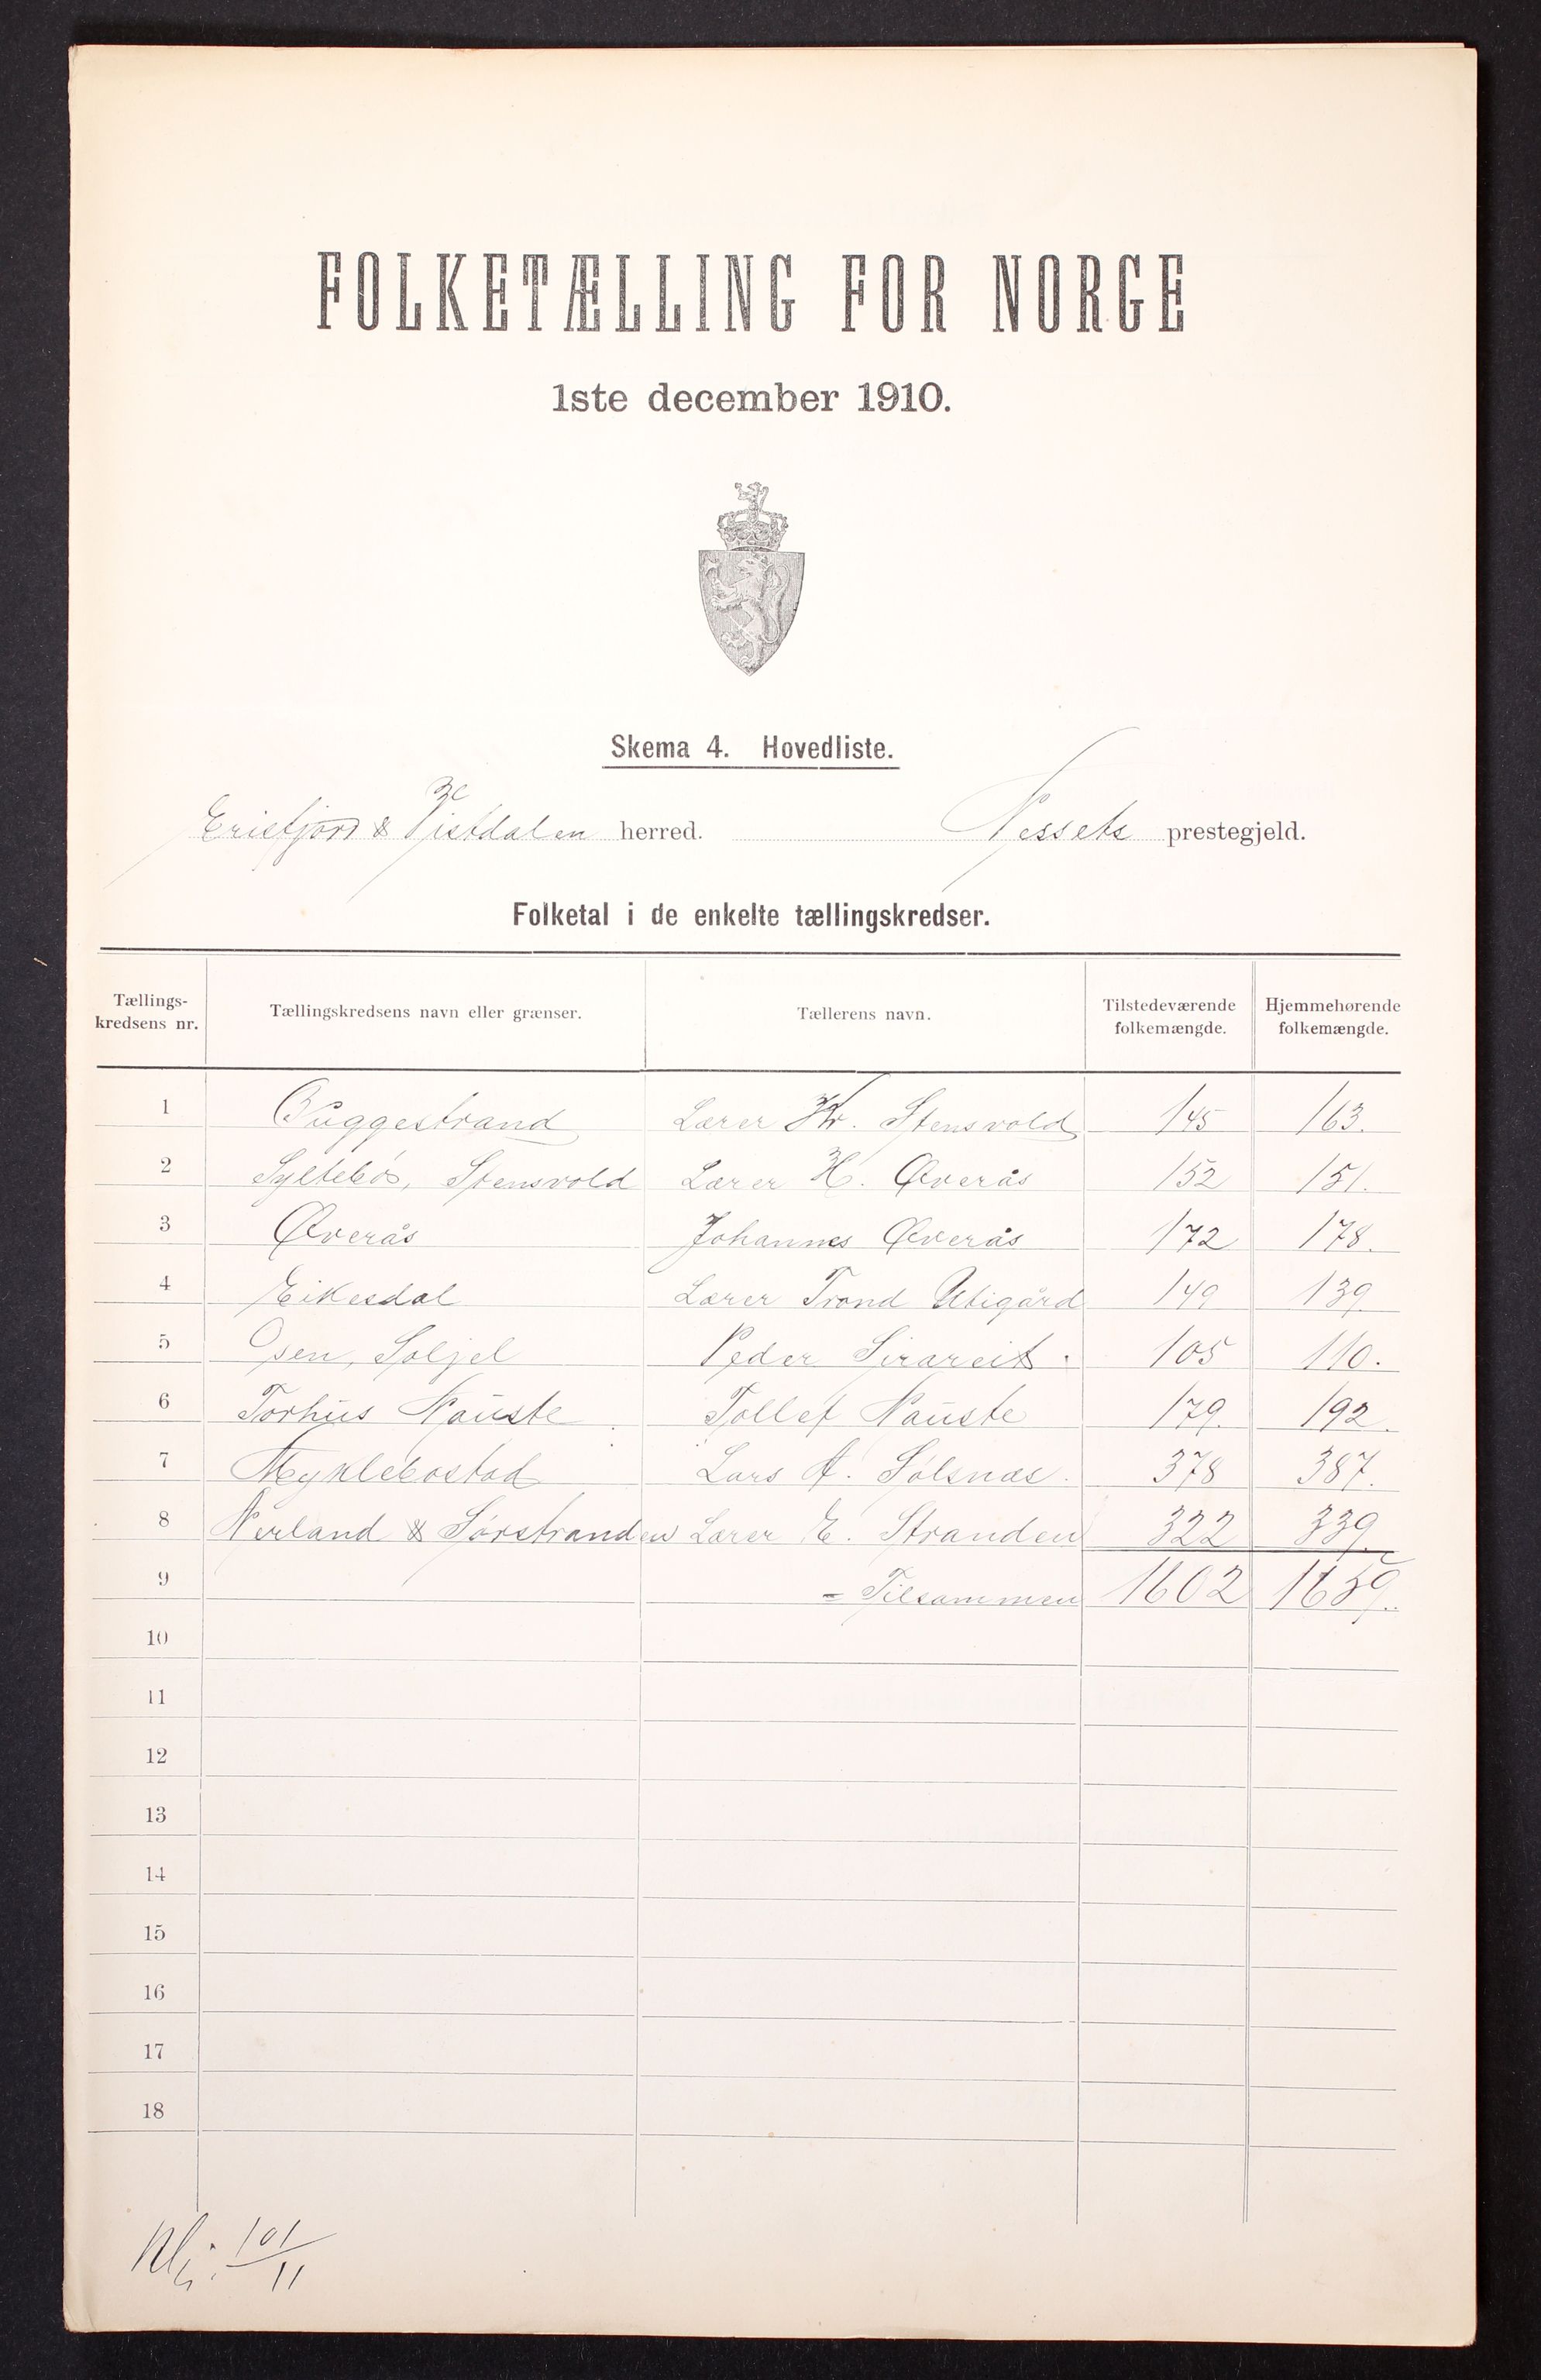 FOLKETÆLLING FOR NORGE
1ste december 1910.
Skema 4. Hovedliste.
Erisfjord & Vistdalen herred. Nessets prestegjeld.
Folketal i de enkelte tællingskredser.
Tællings-kredsens nr. Tællingskredsens navn eller grænser. Tællerens navn. Tilstedeværende folkemængde. Hjemmehørende folkemængde.
1 Buggestrand Lærer Kr. Stensvold 145 163.
2 Syltebø, Stensvold Lærer H. Øverås 152 151.
3 Øverås Johannes Øverås 172 178.
4 Eikesdal Lærer Trond Utigård 149 139.
5 Øsen, Soljel Peder Sirareit. 105 110.
6 Torhus Nauste Tollef Nauste 179. 192.
7 Myklebostad Lars A. Sølsnæs. 378 387.
8 Nerland & Sørstranden Lærer E. Stranden 322 339.
9 = Tilsammen 1602 1659.
10
11
12
13
14
15
16
17
18
101/11